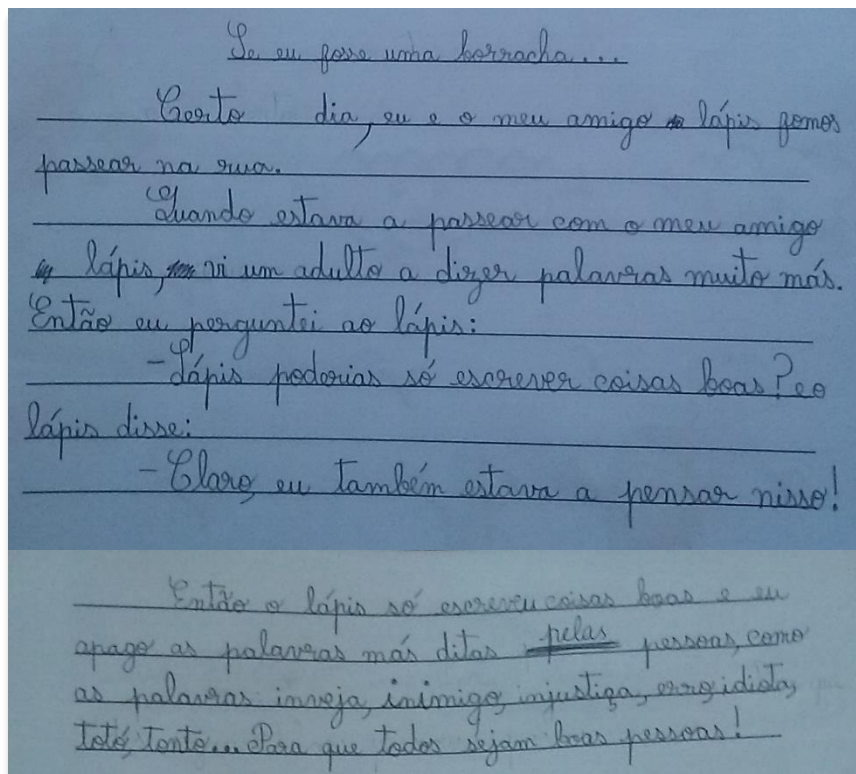 Se eu fosse uma borracha...
Certo dia, eu e o meu amigo lápis fomos
passear na rua.
Quando estava a passear com o meu amigo
lápis, vi um adulto a dizer palavras muito más.
Então eu perguntei ao lápis:
-Lápis poderias só escrever coisas boas? e o
lápis disse:
-Claro, eu também estava a pensar nisso!
Então o lápis só escreveu coisas boas e eu
apago as palavras más ditas pelas pessoas, como
as palavras inveja, inimigo, injustiça, erro, idiota,
totó, tonto... Para que todos sejam boas pessoas!